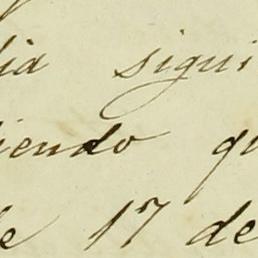 dia sigui
iendo qu
de 17 de